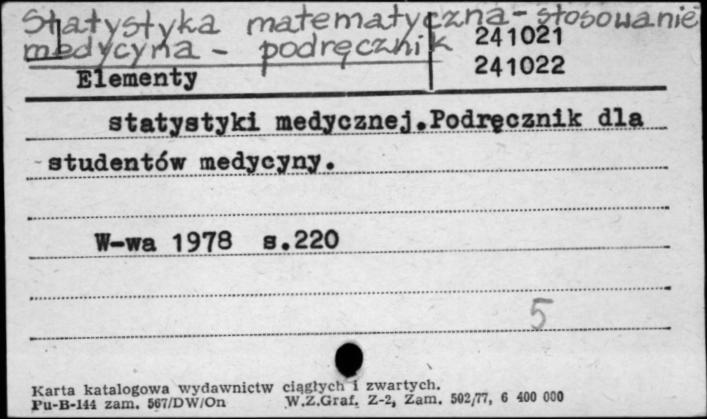 Statystyka matematyczna - stosowanie
medycyna - podręcznik
241021
Elementy
241022
statystyki medycznej.Podręcznik dla
studentów medycyny.
W-wa 1978 s.220
5
Karta katalogowa wydawnictw ciągłych i zwartych.
Pu-B-144 zam. 567/DW/On W.Z.Graf. Z-2, Zam. 502/77, 6 400 000